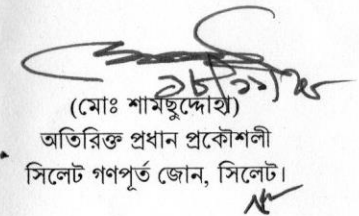 (মোঃ শামছুদ্দোহা)
অতিরিক্ত প্রধান প্রকৌশলী
সিলেট গণপূর্ত জোন, সিলেট।